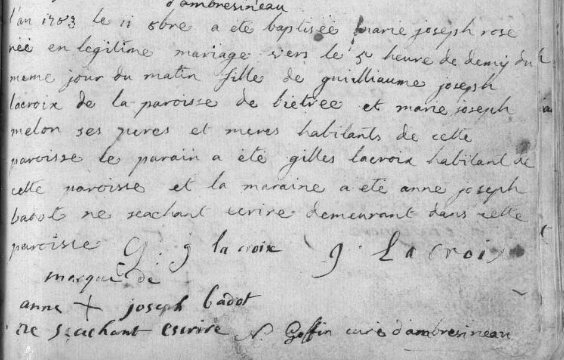 d'ambresineau
l'an 1783 le 11 8bre a eté baptisée marie joseph rose
née en legitime mariage vers le 5e heure de demy du
meme jour du matin fille de guilliaume joseph
lacroix de la paroisse de et marie joseph
melon ses peres et meres habitants de cette
paroisse le parain a eté gilles lacroix habitant de
cette paroisse et la maraine a eté anne joseph
badot ne scachant ecrire demeurant dans cette
paroisse G. j la croix g. La Croix
marque de
anne + joseph badot
ne scachant escrire N. Goffin curé d'ambresineau